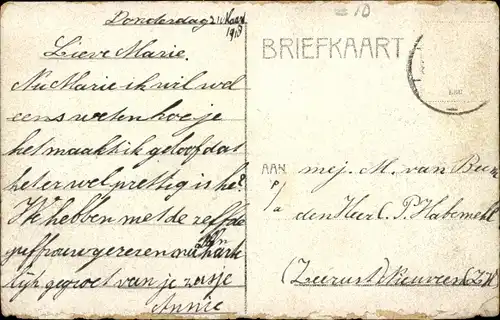 Donderdag 21 Maart
1918
Lieve Marie.
Nu Marie ik wil wel
eens weten hoe je
het maakt ik geloof dat
het er wel prettig is hé?
Ik hebben met de zelfde
juffrouw gereren nu
hartelijk gegroet van je zusje
Annie
BRIEFKAART
AAN
mej. M. van
p/a
den Heer C. P.
(Zeerust)